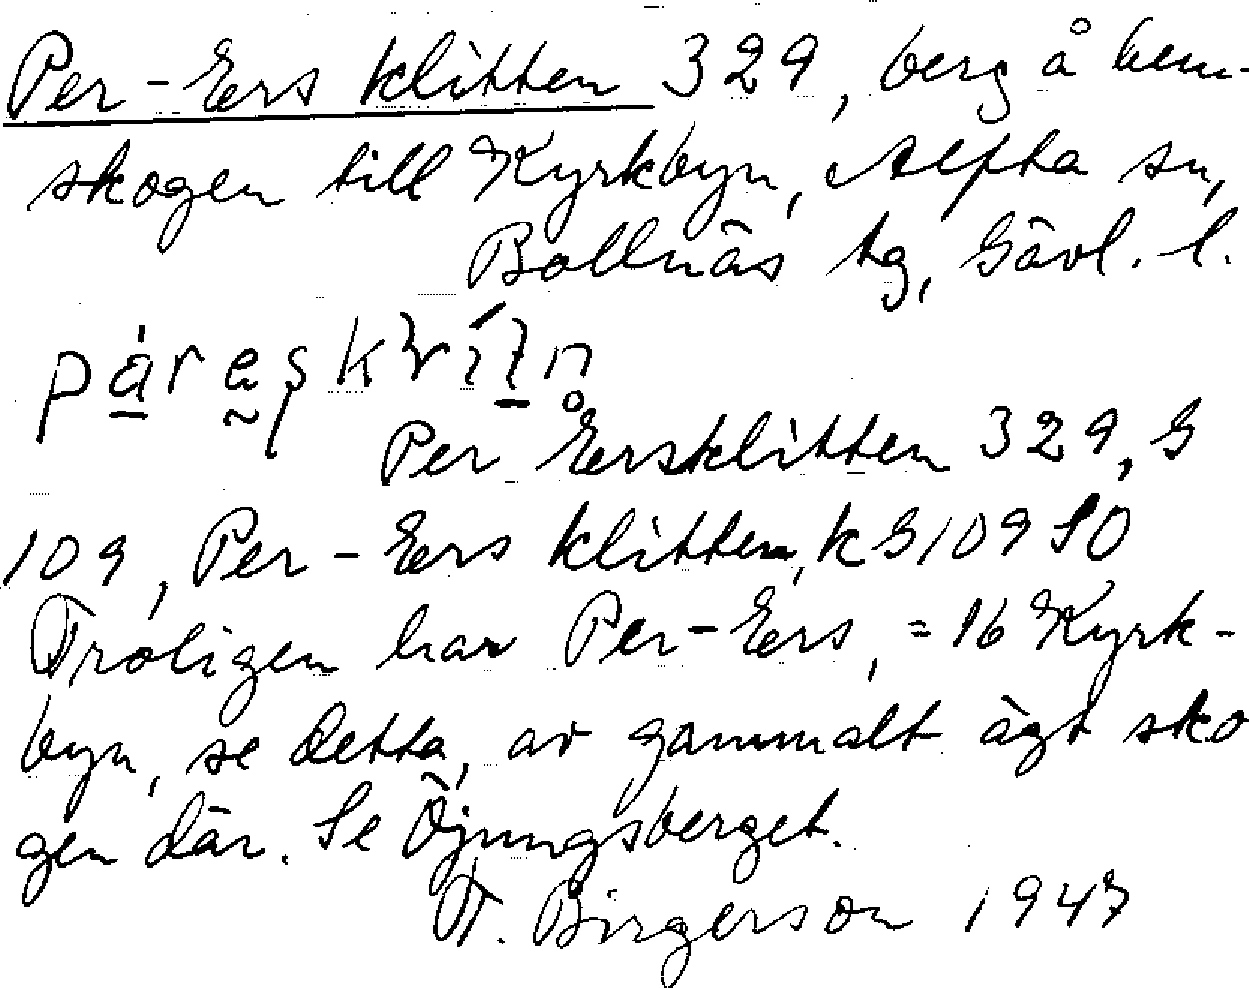 Per-Ers klitten 329, berg å hem-
skogen till Kyrkbyn, Alfta sn,
Bollnäs tg, Gävl. l.
Per Ersklitten 329, G
109, Per-Ers klitten, k G109 SO
Troligen har Per-Ers, = 16 Kyrk-
byn, se detta, av gammalt ägt sko
gen där. Se Öjungsberget.
T. Birgerson 1947